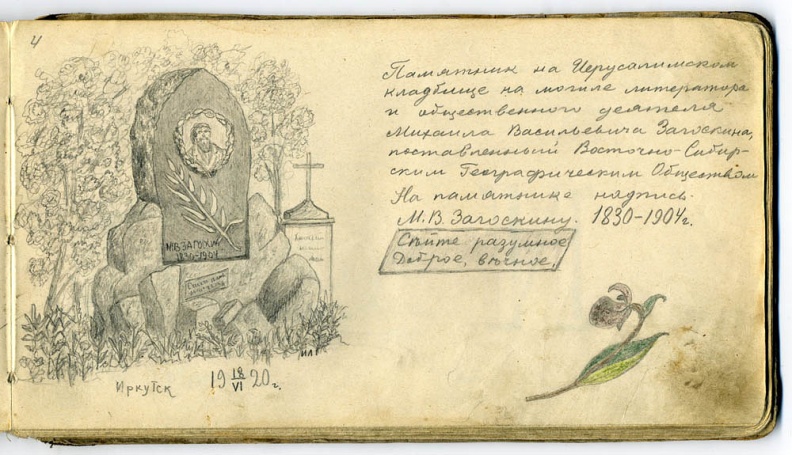 4
М.В. ЗАГОСКИНУ
1830-1904
ИЛ
Иркутск 19 18/VI 20 г.
Памятник на Иерусалимском
кладбище на могиле литератора
и общественного деятеля
Михаила Васильевича Загоскина,
поставленный Восточно-Сибир-
ским Географическим Обществом
На памятнике надпись.
М. В. Загоскину. 1830-1904г.
Сѣйте разумное
Доброе, вѣчное.